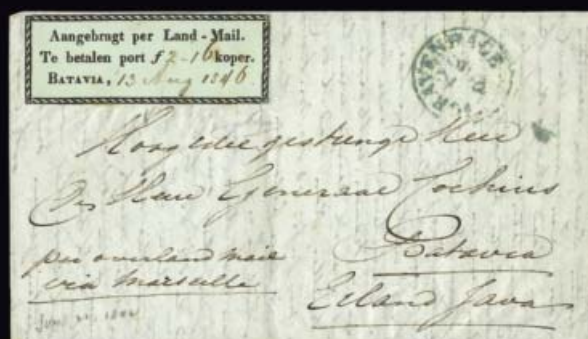 Aangebragt per Land-Mail.
Te betalen port f 2-16 koper.
BATAVIA, 13 Aug 1846
GRAVENHAGE
Hoog edele gestrenge Heer
De Heer Generaal Cochius
Batavia
Eiland Java
per overland mail
via Marseille